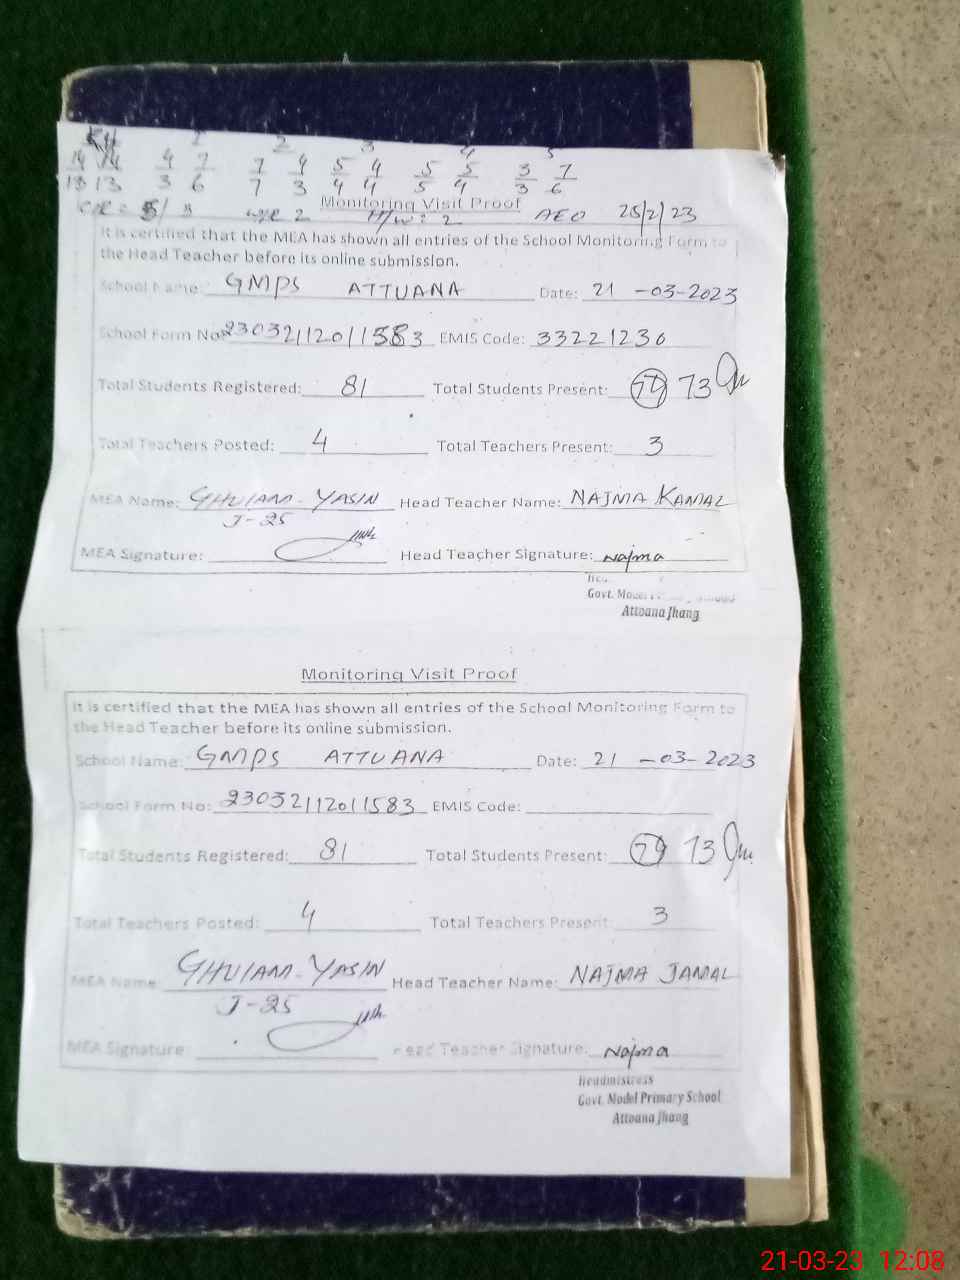 2 2 3 4 5
14 14 4 7 7 4 5 4 5 5 3 7
13 13 3 6 7 3 4 4 5 4 3 6
Monitoring Visit Proof
H/W: 2 AEO 25/2/23
It is certified that the MEA has shown all entries of the School Monitoring Form to
the Head Teacher before its online submission.
School Name: GMPS ATTUANA Date: 21-03-2023
School Form No: 23032112011583 EMIS Code: 33221230
Total Students Registered: 81 Total Students Present: 79 73
Total Teachers Posted: 4 Total Teachers Present: 3
MEA Name: GHULAM-YASIN Head Teacher Name: NAJMA KAMAL
J-25
MEA Signature: Head Teacher Signature: Najma
Govt. Model
Attoana Jhang
Monitoring Visit Proof
It is certified that the MEA has shown all entries of the School Monitoring Form to
the Head Teacher before its online submission.
School Name: GMPS ATTUANA Date: 21-03-2023
School Form No: 23032112011583 EMIS Code:
Total Students Registered: 81 Total Students Present: 79 73
Total Teachers Posted: 4 Total Teachers Present: 3
MEA Name: GHULAM-YASIN Head Teacher Name: NAJMA JAMAL
J-25
MEA Signature: Head Teacher Signature: Najma
Headmistress
Govt. Model Primary School
Attoana Jhang
21-03-23 12:08